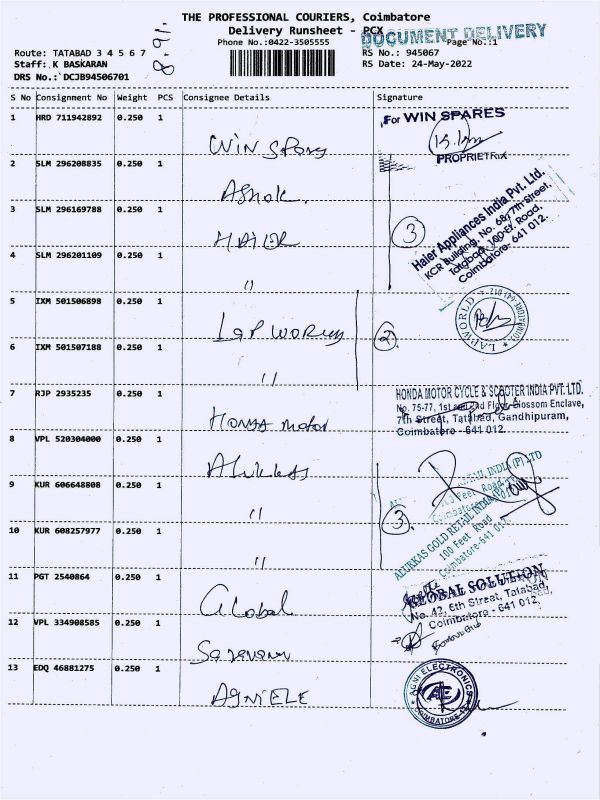 THE PROFESSIONAL COURIERS, Coimbatore
Delivery Runsheet - PCX
DOCUMENT DELIVERY
Phone No.:0422-3505555
Page No.:1
Route: TATABAD 3 4 5 6 7
8.91.
RS No.: 945067
Staff: K BASKARAN
RS Date: 24-May-2022
DRS No.: DCJB94506701
S No Consignment No Weight PCS Consignee Details Signature
1 HRD 711942892 0.250 1 WIN SPARES
For WIN SPARES
PROPRIETRIX
2 SLM 296208835 0.250 1 Ashok.
3 SLM 296169788 0.250 1 HAIER
3
Haier Appliances India Pvt. Ltd.
KCR Building, No. 68, 7th Street,
Tatabad, 100-Ft. Road,
Coimbatore- 641 012.
4 SLM 296201109 0.250 1 "
5 IXM 501506898 0.250 1 LAP WORLD
2
LAPWORLD
COIMBATORE-641 012
6 IXM 501507188 0.250 1 "
7 RJP 2935235 0.250 1 HONDA Motor
HONDA MOTOR CYCLE & SCOOTER INDIA PVT. LTD.
No. 75-77, 1st and 2nd Floor, Blossom Enclave,
7th Street, Tatabad, Gandhipuram,
Coimbatore - 641 012.
8 VPL 520304000 0.250 1 Alukkas
9 KUR 606648808 0.250 1 "
3
ALUKKAS GOLD RETAIL INDIA (P) LTD
100 Feet Road
Coimbatore-641 012
10 KUR 608257977 0.250 1 "
11 PGT 2540864 0.250 1 Global
GLOBAL SOLUTION
No. 42, 6th Street, Tatabad,
Coimbatore - 641 012.
12 VPL 334908585 0.250 1
13 EDQ 46881275 0.250 1 AGNI ELE
AGNI ELECTRONICS
COIMBATORE-12